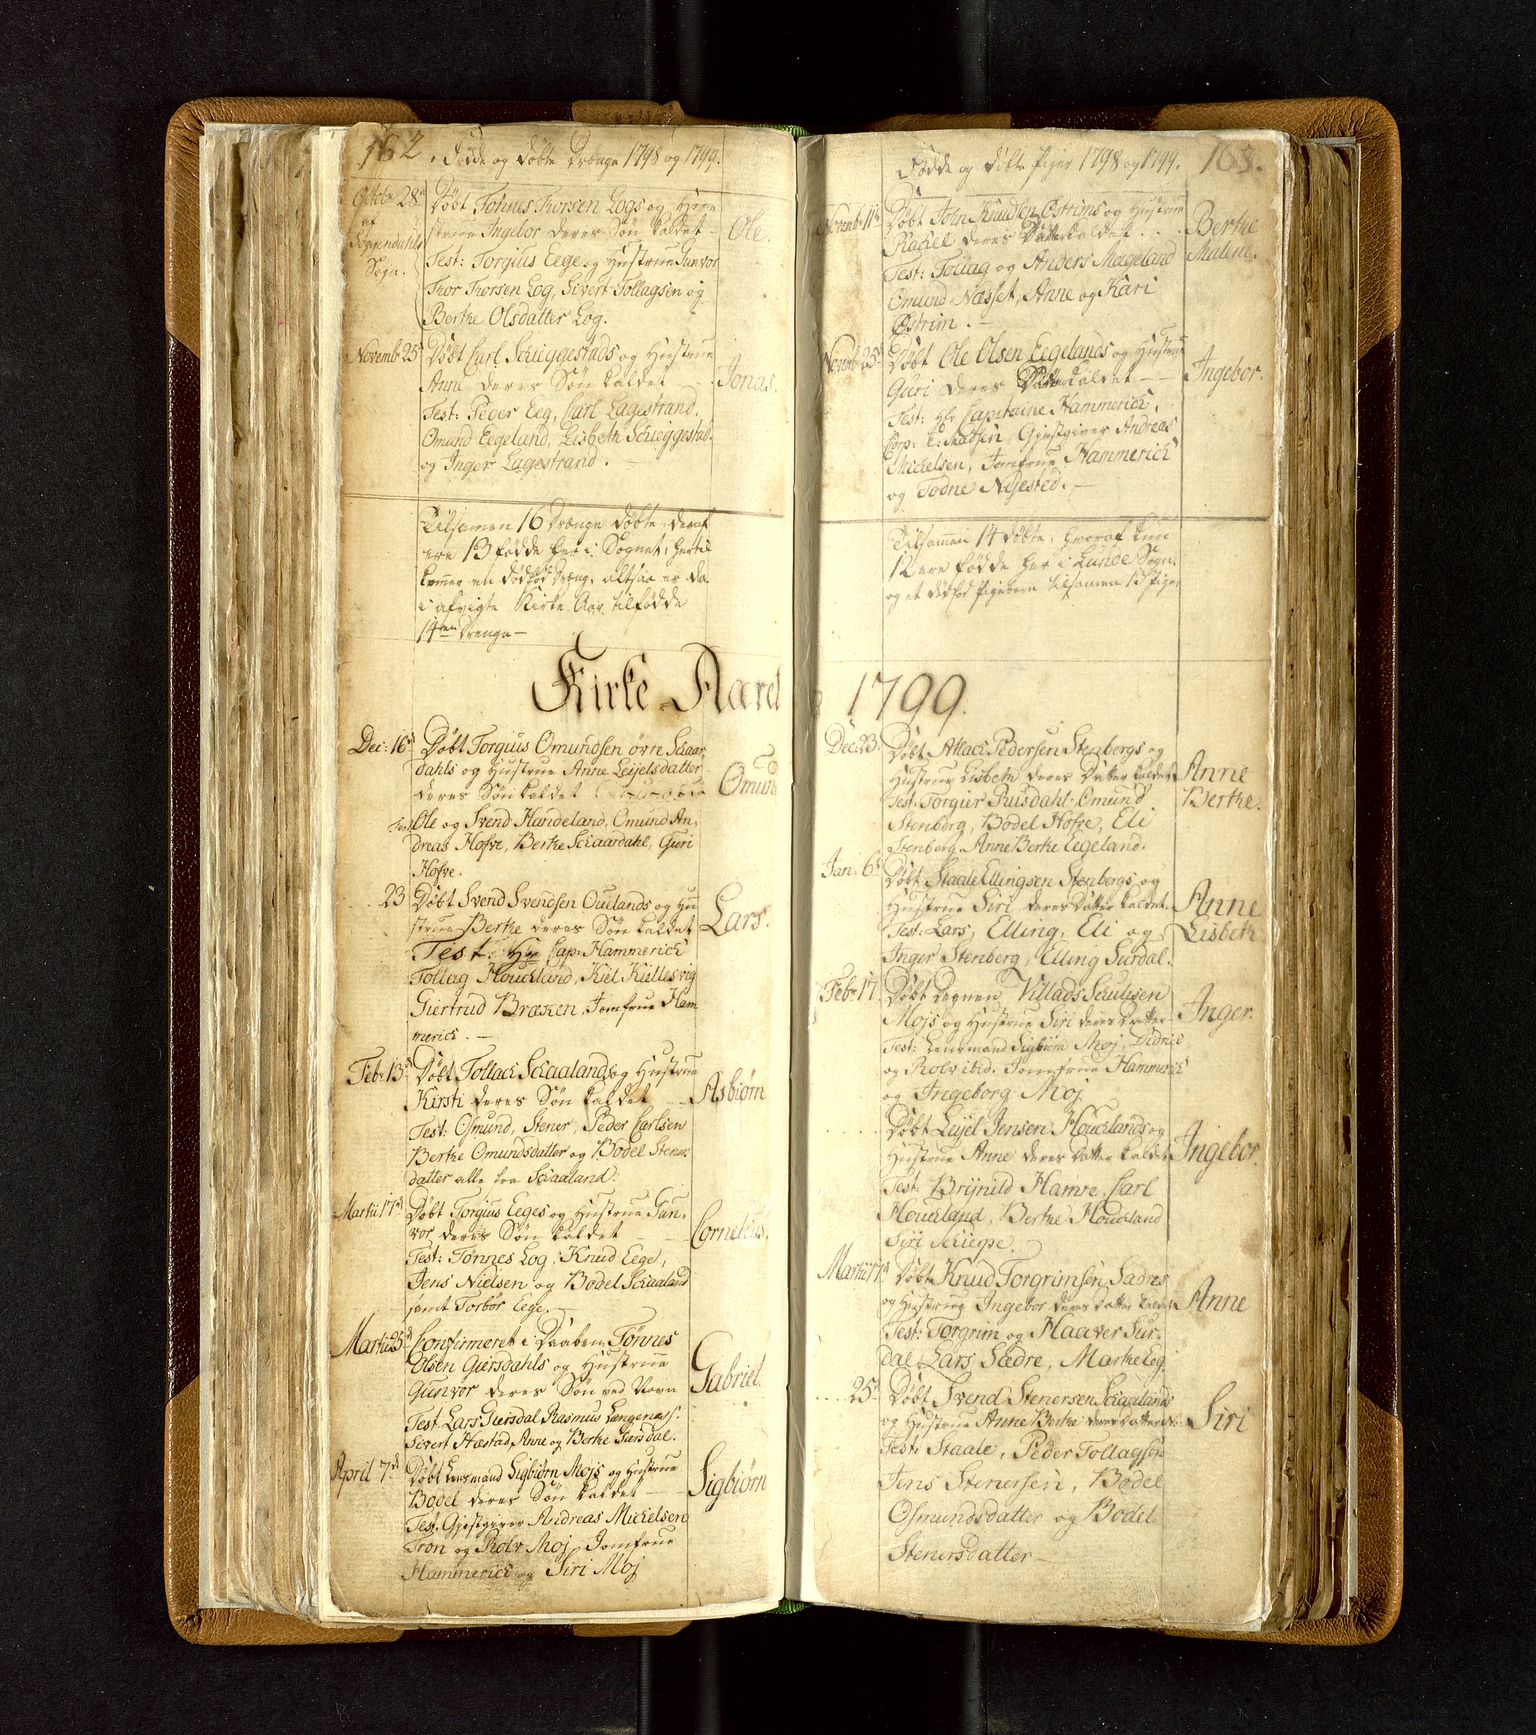 162. Fødde og Døbte Drænge 1798 og 1799.
Octobr 28de
af
Soggendahls
Sogn.
Døbt Tønnes Thorsen Logs og Hu-
strue Ingebor deres Søn kaldet - Ole.
Test: Torgius Eege og Hustrue Gunvor
Thor Thorsen Log, Sivert Tollagsen og
Berthe Olsdatter Log.
Novembr 25de Døbt Carl Schieggestads og Hustrue
Anne deres Søn kaldet - Jonas.
Test: Peder Eeg, Carl Lagestrand,
Omund Eegeland, Lisbeth Schieggestad
og Inger Lagestrand.
Tilsamen 16 Drænge døbte, deraf
ere 13 fødde her i Sognet; hertil
kommer en dødfød Dræng, altsaa er da
i afvigte Kirke Aar tilfødde
14ten Drenge -
Kirke Aaret
Dec: 16de Døbt Torgius Omundsen øvre Schaar
dahls og Hustrue Anne Leijelsdatter
deres Søn kaldet Omund
Test: Ole og Svend Handeland, Omund An-
dreas Hofve, Berthe Schaardahl, Guri
Hofve.
23 Døbt Svend Svendsen Ouelands og Hu
strue Berthe deres Søn kaldet Lars.
Test. Hr Cap: Hammerich
Tollag Houchland, Kiel Kiellesvig
Giertrud Bræken, Jomfrue Ham
merich. -
Febr 13de Døbt Tollach Schaalands og Hustrue
Kirsti deres Søn kaldet - Asbiørn
Test: Osmund, Stener, Peder Carlsen
Berthe Omundsdatter og Bodel Stener
datter alle fra Schaaland.
Martii 17de Døbt Torgius Eeges og Hustrue Gun-
vor deres Søn kaldet - Cornelius.
Test: Tønnes Log, Knud Eege,
Jens Nielsen og Bodel Schaaland
samt Torbør Eege.
Martii 25de Confirmeret i Daaben Tønnes
Olsen Giersdahls og Hustrue
Gunvor deres Søn ved Navn Gabriel.
Test. Lars Giersdal Rasmus Longenæss.
Sivert Hæstad, Anne og Berthe Giersdal.
April 7de Døbt Lensmand Sigbiørn Mojs og Hustrue
Bodel deres Søn kaldet - Sigbiørn
Test. Gjestgiver Andreas Michelsen
Tron og Rolv Moj, Jomfrue
Hammerich og Siri Moj
Fødde og Døbte Piger 1798 og 1799. 163.
Novembr 11te Døbt John Knudsen Østrims og Hustrue
Rachel deres Datter kaldet . . . Berthe
Malene.
Test: Tollag og Anders Mægeland
Omund Næsset, Anne og Kari
Østrim. -
Novembr 25de Døbt Ole Olsen Eegelands og Hustrue
Guri deres Datter kaldet - - Ingebor.
Test: Hr Capitaine Hammerich,
Corp: E: Madsen, Gjestgiver Andreas
Michelsen, Jomfrue Hammerich
og Todne Nyested. -
Tilsammen 14 døbte, hvoraf kun
12 ere fødde her i Lunde Sogn,
og et dødfød Pigebarn tilsamen 13 Piger
1799.
Dec: 23. Døbt Atlach Pedersen Stenbergs og
Hustrue Lisbeth deres Datter kaldet Anne
Berthe.
Test: Torgier Ruisdahl, Omund
Stenberg, Bodel Hofve, Eli
Stenberg, Anne Berthe Eegeland.
Jan: 6te Døbt Staale Ellingsen Stenbergs og
Hustrue Siri deres Datter kaldet Anne
Lisbeth
Test: Lars, Elling, Eli og
Inger Stenberg, Elling Surdal.
Febr 17 Døbt Degnen Villads Schulesen
Mojs og Hustrue Siri deres Datter Inger.
Test: Lensmand Sigbiørn Moj, Didrich
og Rolv ibid. Jomfrue Hammerich
og Ingeborg Moj.
Døbt Leijel Jensen Houchlands og
Hustrue Anne deres Datter kaldet Ingebor.
Test: Brijnild Hamre, Carl
Houchland, Berthe Houchland
Siri Schierpe.
Martii 17de Døbt Knud Torgrimsen Sædres
og Hustrue Ingebor deres Datter kaldet Anne
Test: Torgrim og Haaver Sur-
dal, Lars Sædre, Marthe Eeg.
25de Døbt Svend Stenersen Schaalands
og Hustrue Anne Berthe deres Datter Siri
Test: Staale, Peder Tollagsen
Jens Stenersen, Bodel
Osmundsdatter og Bodel
Stenersdatter -